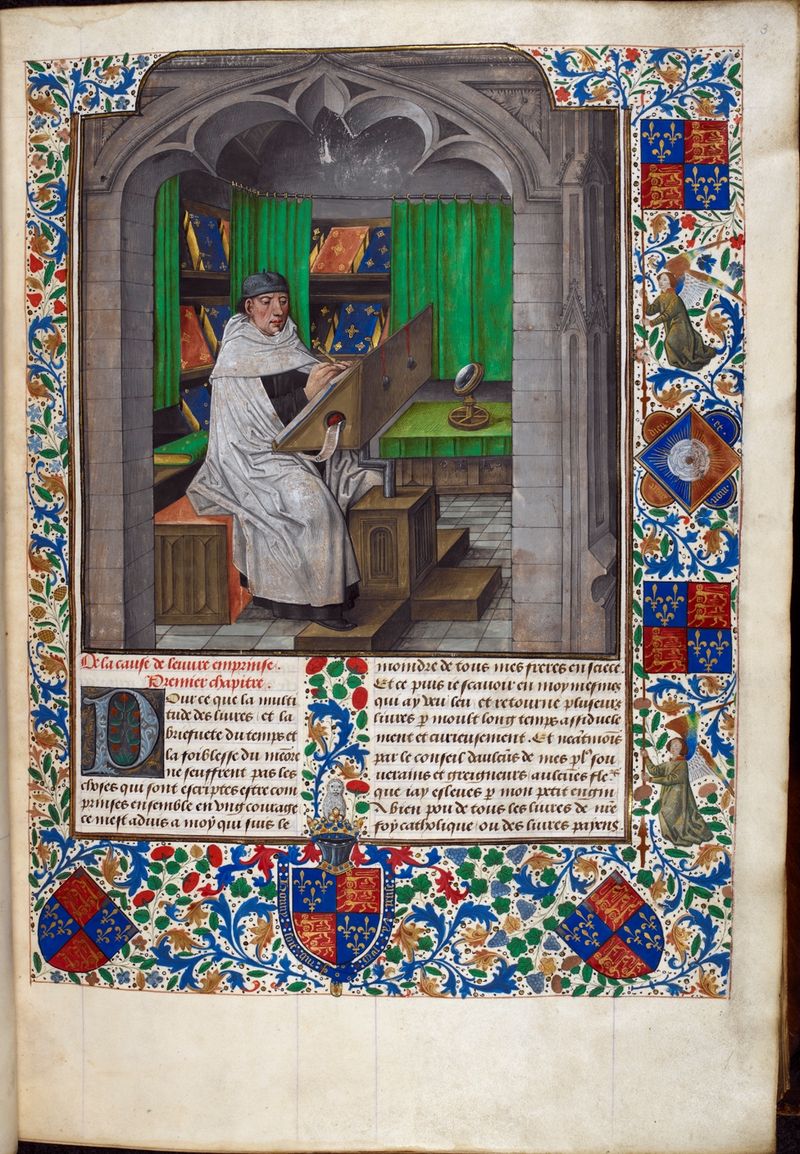 De la cause de leuvre emprinse.
Premier chapitre.
Pour ce que la multi
tude des liures / et la
briefuete du temps et
la foiblesse du memoire
ne seuffrent pas les
choses qui sont escriptes estre com
prinses ensemble en vng courage
ce mest aduis a moy qui suis le
moindre de tous mes freres en
Et ce puis ie scauoir en moy mesmes
qui ay veu leu et retourne plusieurs
liures p moult long temps assiduele
ment et curieusement. Et
par le conseil daulcuns de mes
uerains et greigneurs aulcunes
que iay esleues p mon petit engin
A bien pou de tous les liures de nre
foy catholique / ou des liures payens
dieu et
mon
3